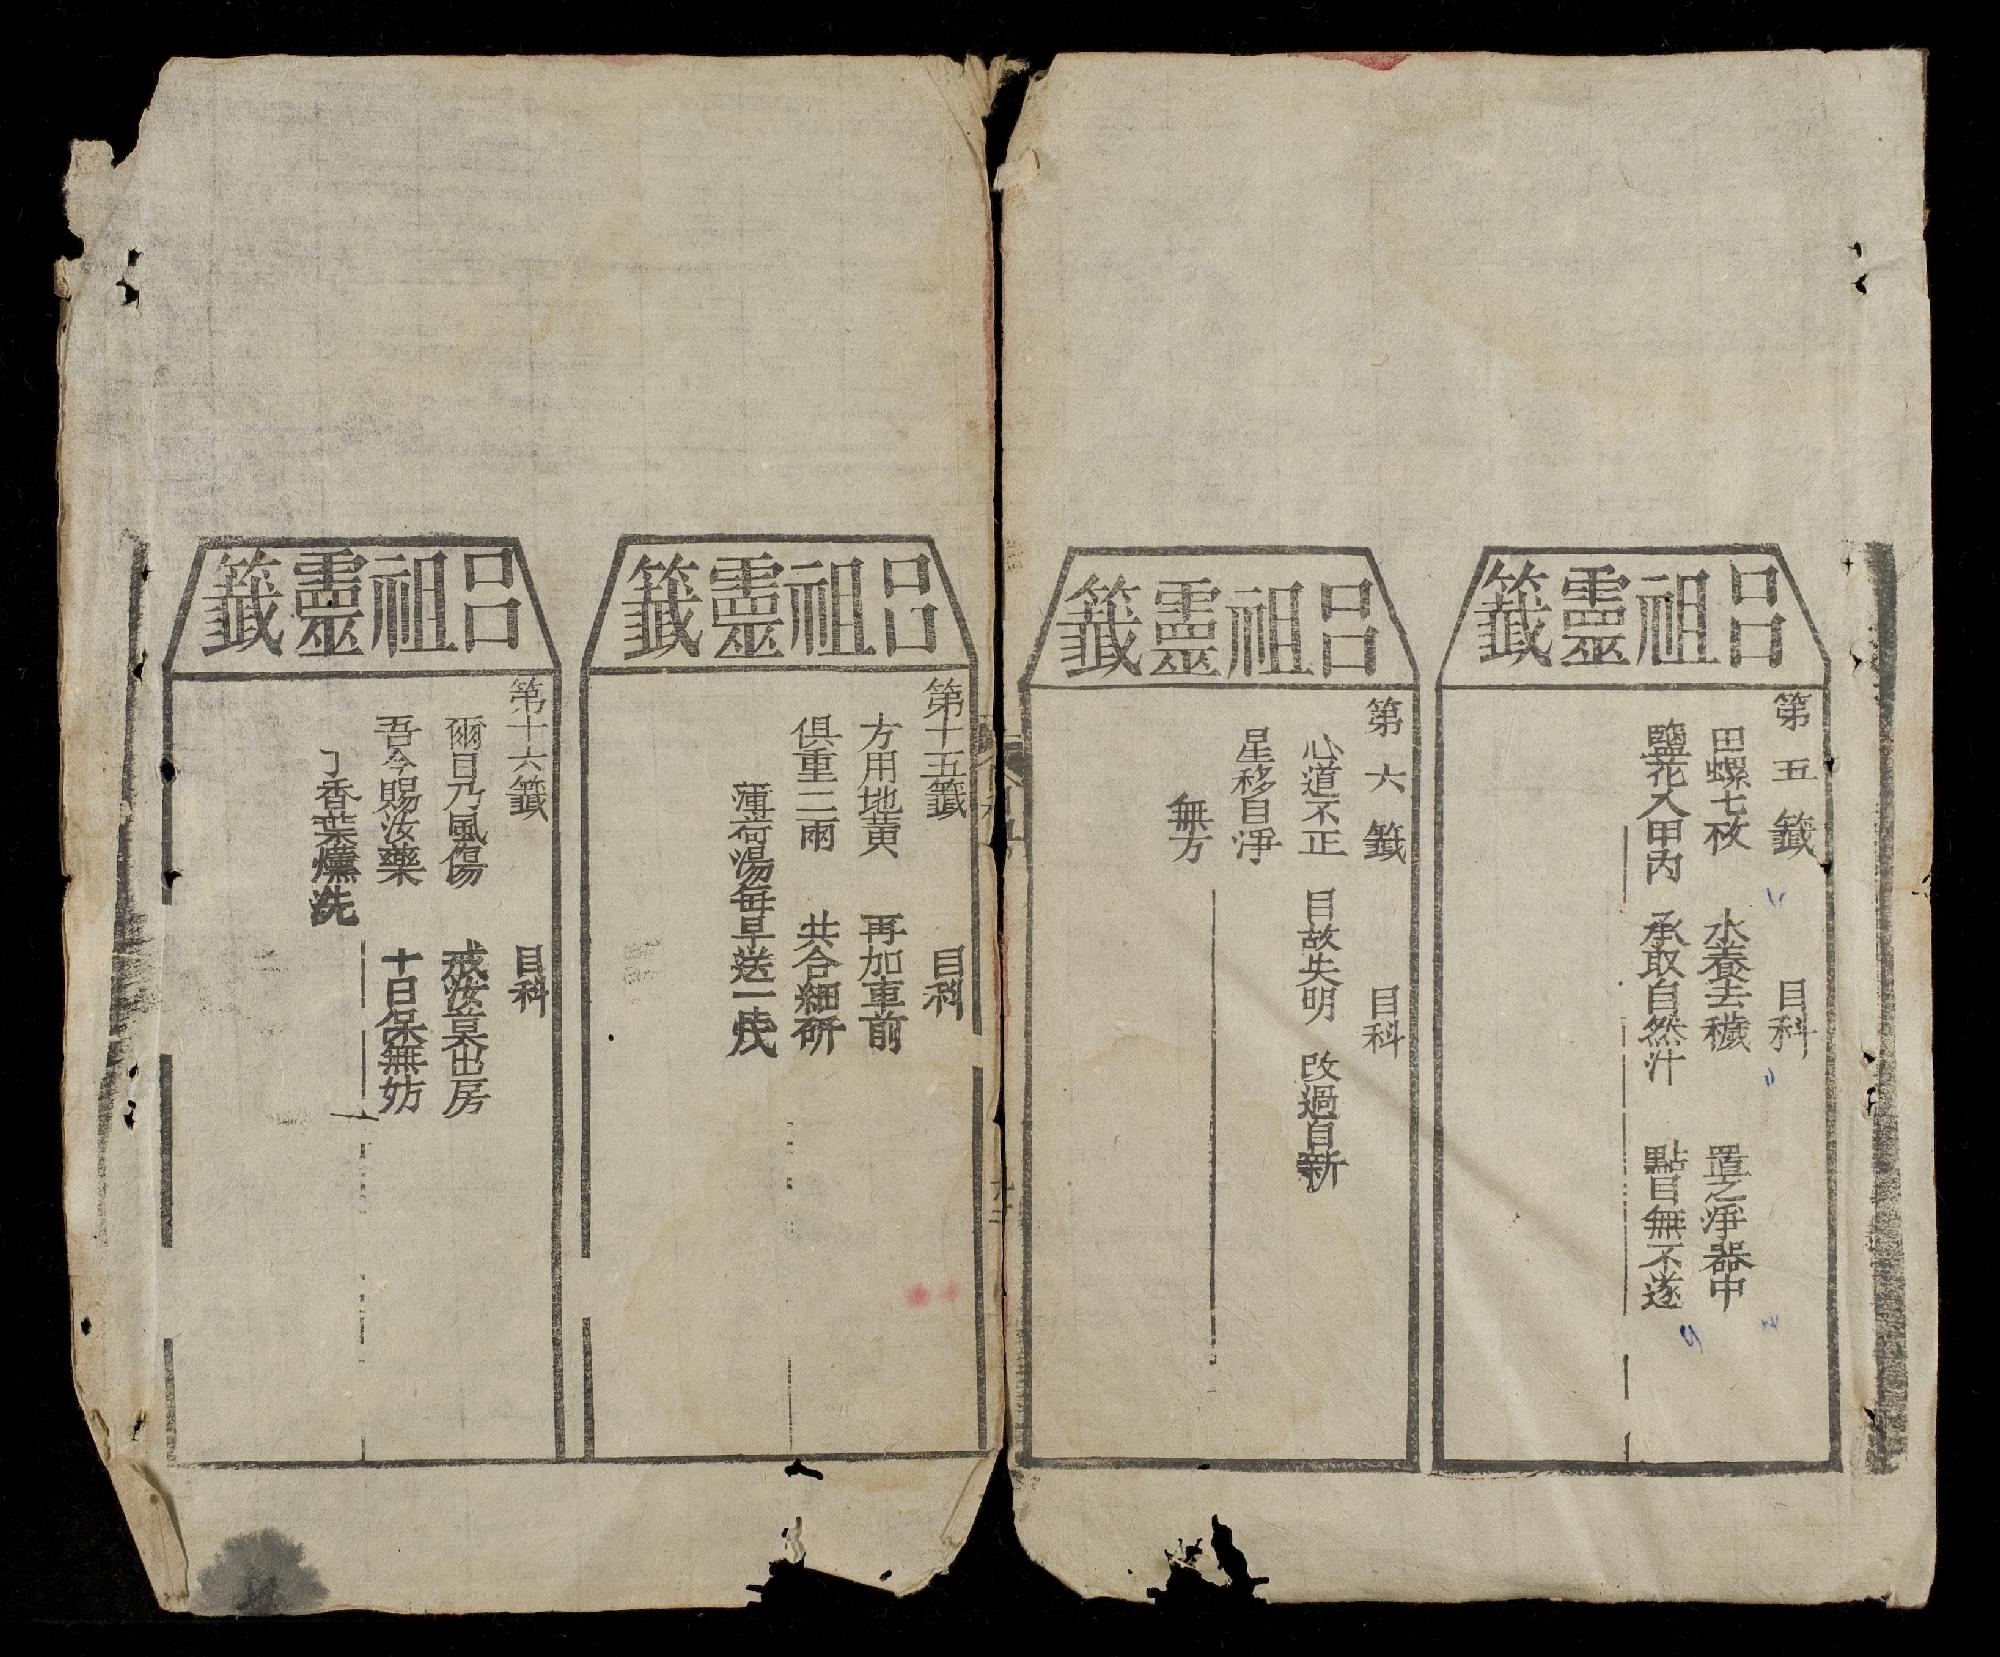 呂祖靈籤
第五籤 目科
田螺七枚 水養去穢 置之淨器中
鹽花入甲內 承取自然汁 點目無不遂
呂祖靈籤
第六籤 目科
心道不正 目故失明 改過自新
星移目淨
無方
呂祖靈籤
第十五籤 目科
方用地黃 再加車前
俱重二兩 共合細研
薄荷湯每早送一戔
呂祖靈籤
第十六籤 目科
爾目乃風傷 戒汝莫出房
吾今賜汝藥 十日保無妨
丁香葉燻洗